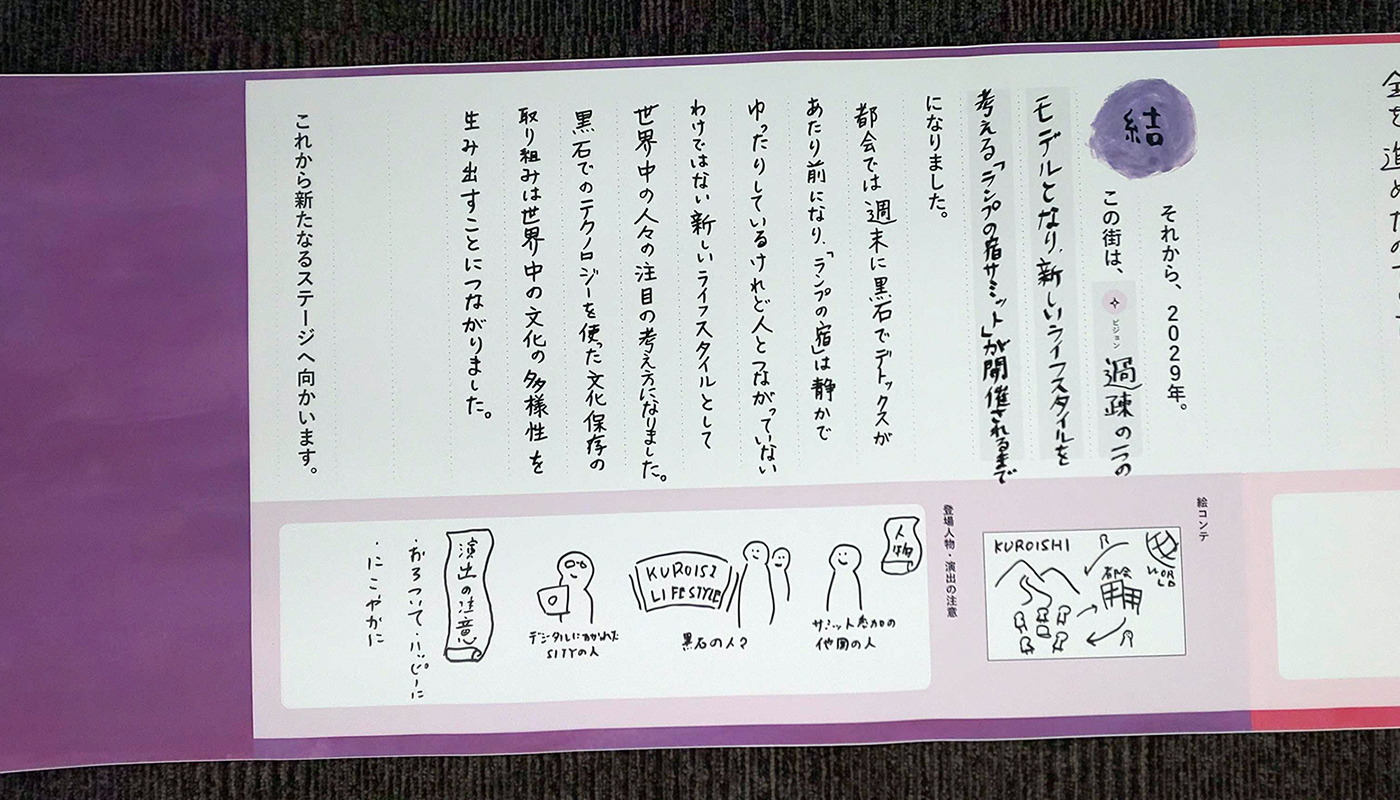 金を進めたので
結
それから、2029年。
この街は、
ビジョン
過疎の一つの
モデルとなり、新しいライフスタイルを
考える「ランプの宿サミット」が開催されるまで
になりました。
都会では週末に黒石でデトックスが
あたり前になり、「ランプの宿」は静かで
ゆったりしているけれど人とつながっていない
わけではない新しいライフスタイルとして
世界中の人々の注目の考え方になりました。
黒石でのテクノロジーを使った文化保存の
取り組みは世界中の文化の多様性を
生み出すことにつながりました。
これから新たなるステージへ向かいます。
絵コンテ
KUROISHI
都会
WORLD
登場人物・演出の注意
人物
サミット参加の
他国の人
KUROISI
LIFESTYLE
黒石の人々
デジタルにつかれた
SITYの人
演出の注意
・おちついて・ハッピーに
・にこやかに